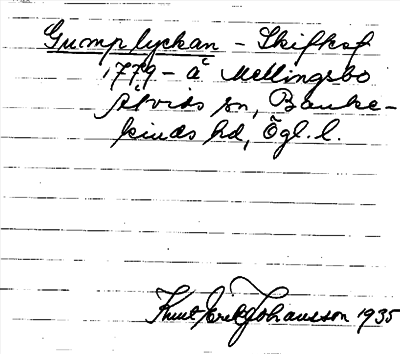 Gumplyckan - Skifksf
1779 - å Mellingsbo
Åtvids sn, Banke-
kinds hd, Ögl. l.
Knut Erik Johansson 1935